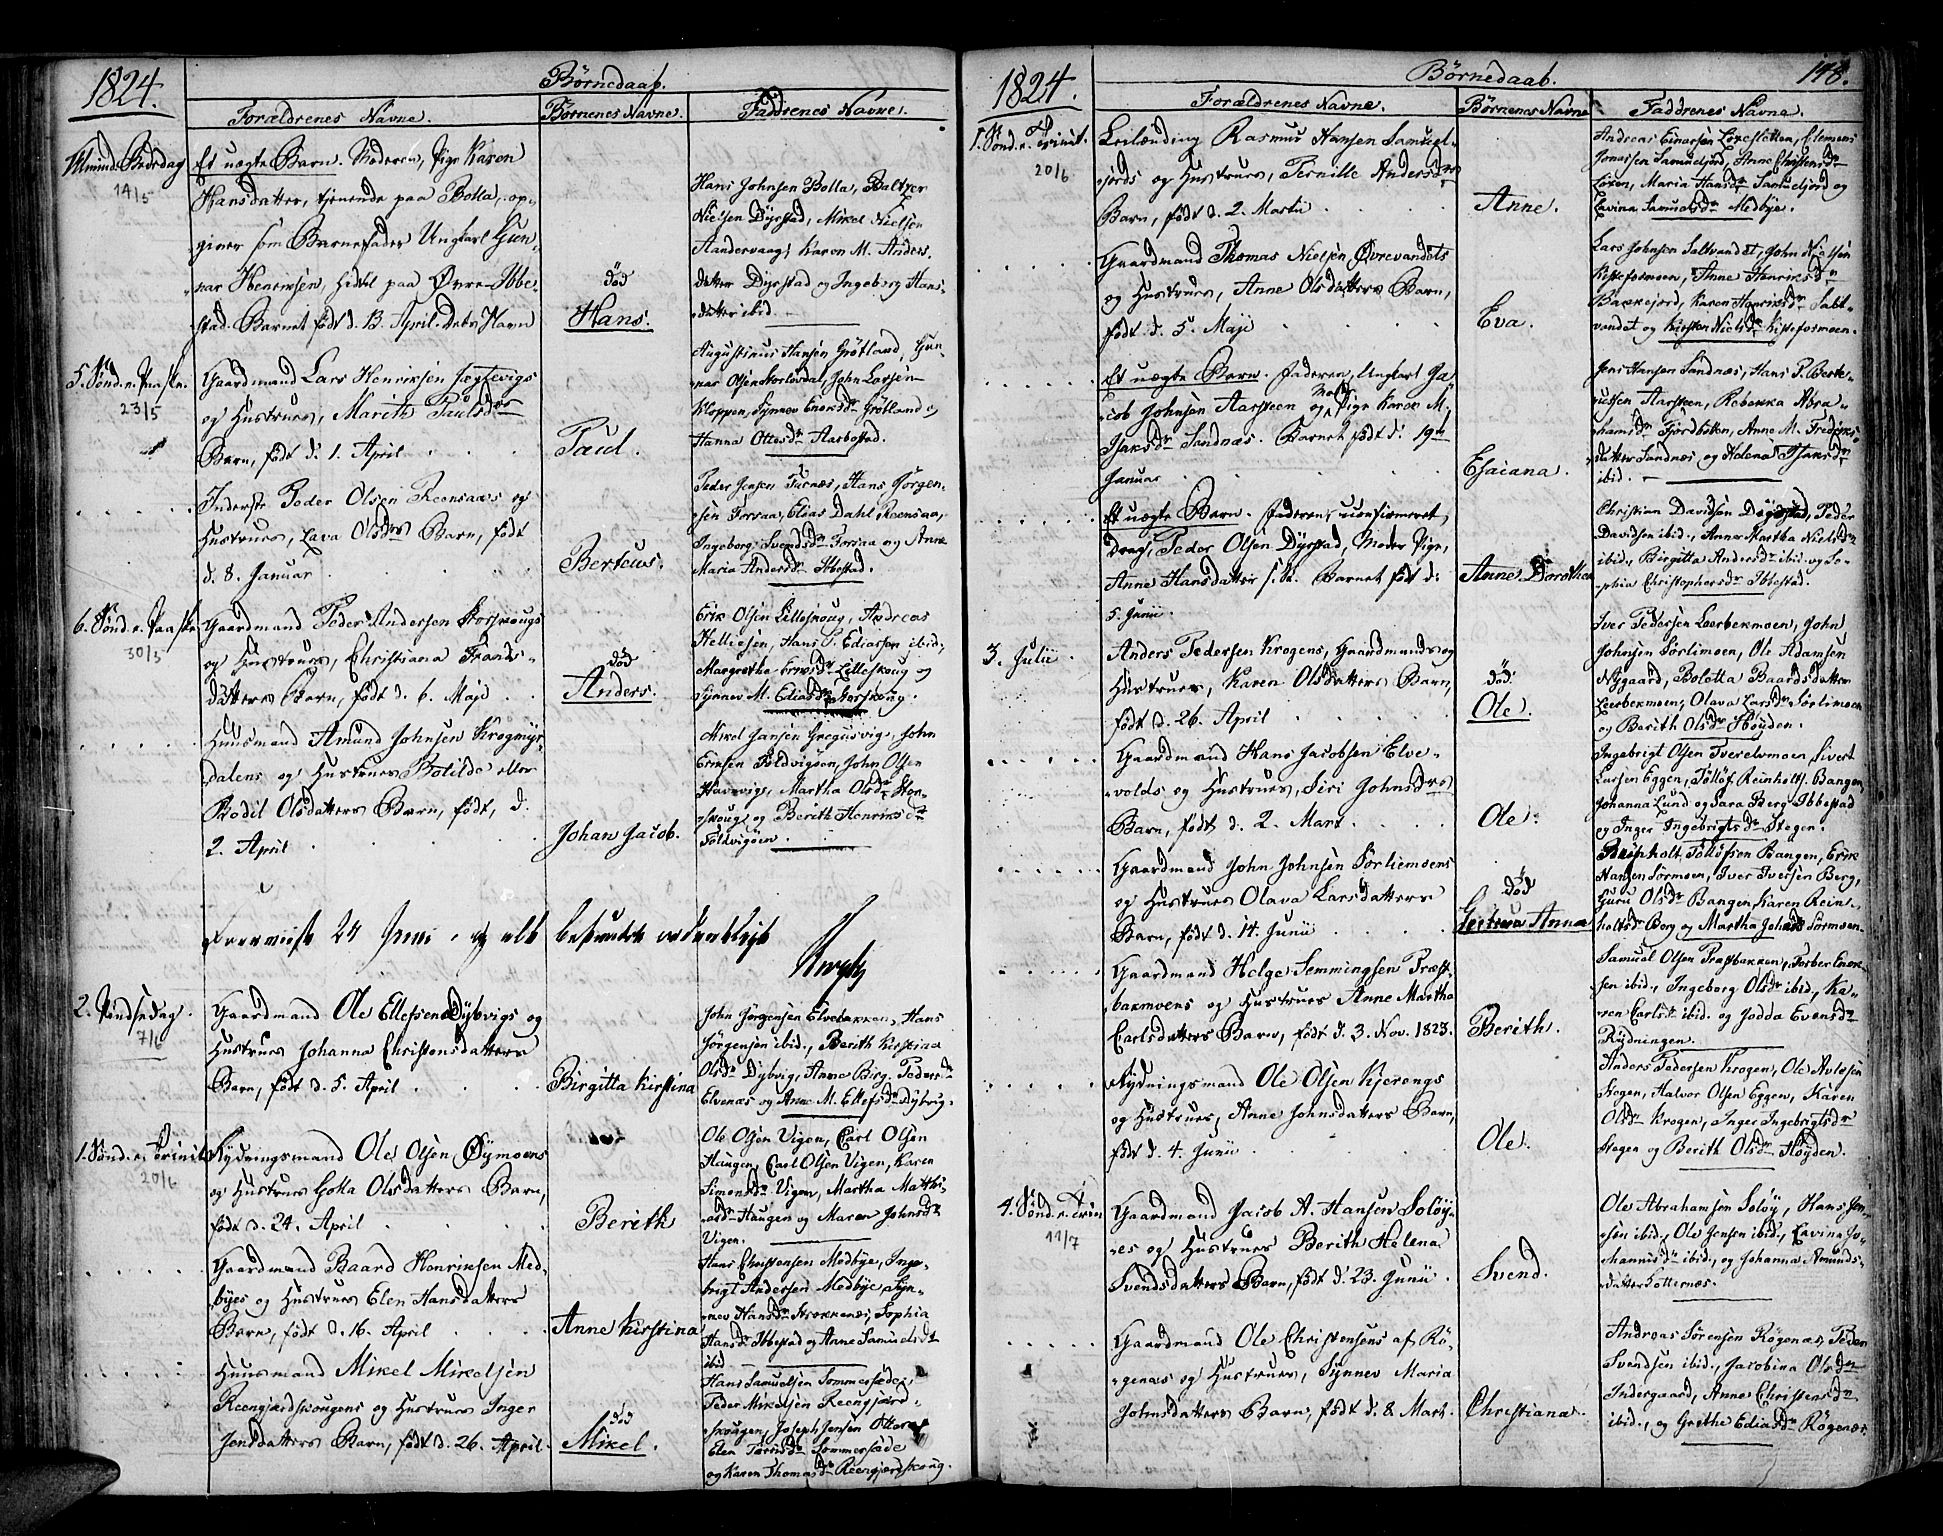 1824.
Børnedaab.
Forældrenes Navne.
Børnenes Navne.
Faddrenes Navne.
Almind. Bededag
14/5
Et uægte Barn. Moderen, Pige Karen
Hansdatter, tjenende paa Bolla, op-
giver som Barnefader Ungkarl Gun-
nar Henriksen, hidtil paa Øvre-Ibbe-
stad. Barnet født d. 13. April. Dets Navn
død
Hans.
Hans Johnsen Bolla, Baltzer
Nielsen Dyrstad, Mikel Nielsen
Aandervaag, Karen M. Anders-
datter Dyrstad og Ingeborg Hans-
datter ibid.
5. Sønd. e. Paaske.
23/5
Gaardmand Lars Henriksen
og Hustrues, Marith Paulsdrs
Barn, født d. 1. April
Paul.
Augustinus Hansen Grøtland, Gun-
nar Olsen Storlovdal, John Larsen
Kloppen, Synnev Enoksdr Grøtland,
Hanna Ottesdr Aarbostad.
Inderste Peder Olsen Reensaaes og
Hustrues, Lava Olsdrs Barn, født
d. 8. Januar
Berteus.
Peder Jensen Furnæs, Hans Jørgen-
sen Forsaa, Elias Dahl Reensaa,
Ingeborg Svendsdr Forsaa og Anne
Maria Andersdr Ibbestad.
6. Sønd. e. Paaske
30/5
Gaardmand Peder Andersen Storskougs
og Hustrues, Christiana Frands-
datters Barn, født d. 6. Maji
død
Anders.
Erik Olsen Lilleskoug, Andreas
Helliesen, Hans P. Ediassen ibid,
Margrethe Eriksdr Lilleskoug og
Synnev M. Ediasdr Storskoug.
Huusmand Amund Johnsen Krogmyr-
dalens og Hustrues Botilde eller
Bodil Olsdatters Barn, født, d.
2. April
Johan Jacob.
Mikel Jansen Gregusvig, John
Eriksen Foldvigøen, John Olsen
Havnvig, Martha Olsdr Stor-
skoug, og Berith Henriksdr
Foldvigøen
24 Juni og alt
2. Pindsedag.
7/6
Gaardmand Ole Ellefsens Dybvigs og
Hustrues Johanna Christensdatters
Barn, født d. 5. April
Birgitta Kirstina
John Jørgensen Elvebakken, Hans
Jørgensen ibid., Berith Kirstina
Olsdr Dybvig, Anne Birg. Pedersdr
Elvenæs og Anne M. Ellefsdr Dybvig.
1. Sønd. e. Trinit.
20/6
Rydningsmand Ole Olsen Øymoens
og Hustrues Golla Olsdatters Barn,
født d. 24. April
Berith
Ole Olsen Vigen, Carl Olsen
Haugen, Carl Olsen Vigen, Karen
Simonsdr Vigen, Martha Matthi-
asdr Haugen og Maren Johnsdr
Vigen.
Gaardmand Baard Henriksen Med-
byes og Hustrues Elen Hansdatters
Barn, født d. 16. April
Anne Kirstina
Hans Christensen Medbye, Inge-
brigt Andersen Medbye, Syn-
nev Hansdr Krokenæs, Sophia
Hansdr Ibbestad og Anne Samuelsdr
ibid
Huusmand Mikel Mikelsen
Reengjærdskougens og Hustrues Inger
Jensdatters Barn, født d. 26. April.
død
Mikel.
Hans Samuelsen Sommersæde,
Peder Mikelsen Reengjærd-
skougen, Joseph Jensen
Elen Sommersæde
og Karen Thomasdr Reengjærdskoug.
1824.
Børnedaab.
148.
Forældrenes Navne.
Børnenes Navne
Faddrenes Navne.
1. Sønd. e. Trinit.
20/6
Leilænding Rasmus Hansen Samuel-
jords og Hustrues, Pernille Andersdrs
Barn, født d. 2. Martii
Anne.
Andreas Einarsen Løvslætten, Clemens
Jonassen Samueljord, Anne Christensdr
Løven, Maria Hansdr Samueljord og
Lavina Samuelsdr Medbye.
Gaardmand Thomas Nielsen Øvrevandets
og Hustrues, Anne Olsdatters Barn,
født d. 5. Maji
Eva.
Lars Johnsen Saltvandet, John Nielsen
Kistefosmoen, Anne Henriksdr
Bakkejord, Karen Henriksdr Salt-
vandet og Kirsten Nielsdr Kistefosmoen.
Et uægte Barn. Faderen, Ungkarl Ja-
cob Johnsen Aarsteen og Moder Pige Karen M.
Isaksdr Sandnæs. Barnet født d. 19de
Januar
Esaiana.
Jens Hansen Sandnæs, Hans P. Berte-
ussen Aarsteen, Rebekka Abra-
hamsdr Fjordbotten, Anne M. Fredriks-
datter Sandnæs og Helena Isaksdr
ibid.
Et uægte Barn. Faderen, uconfirmeret
Dreng, Peder Olsen Dyrstad, Moder Pige,
Anne Hansdatter s. St. Barnet født d.
5. Junii.
Anne Dorothea
Christian Davidsen Dyrstad, Peder
Davidsen ibid., Anne Martha Nielsdr
ibid., Birgitta Andersdr ibid. og So-
phia Christophersdr Ibbestad.
3. Julii
Anders Pedersen Krogens, Gaardmands og
Hustrues, Karen Olsdatters Barn,
født d. 26. April
død
Ole.
Iver Pedersen Leerbekmoen, John
Johnsen Sørlimoen, Ole Adamsen
Nygaard, Bolotta Baardsdatter
Leerbekmoen, Olava Larsdr Sørlimoen
og Berith Olsdr Høyden.
Gaardmand Hans Jacobsen Elve-
volds og Hustrues, Siri Johnsdrs
Barn, født d. 2. Mart
Ole.
Ingebrigt Olsen Tverelvmoen, Sivert
Larsen Eggen, Tølløf Reinholts. Bangen,
Johanna Lund og Sara Berg Ibbestad
og Inger Ingebrigtsdr Stegen.
Gaardmand John Johnsen Sørliemoens
og Hustrues Olava Larsdatters
Barn, født d. 14. Junii
død
Gertrue Anna
Reinholt Tølløfsen Bangen, Erik
Hansen Sørmoen, Iver Iversen Berg,
Guru Olsdr Bangen, Karen Rein-
holtsdr Berg og Martha Johnsdr Sørmoen.
Gaardmand Helge Semmingsen Præst-
bakmoens og Hustrues Anne Martha
Carlsdatters Barn, født d. 3. Nov. 1823.
Berith.
Samuel Olsen Præstbakken, Torber Enok-
sen ibid., Ingeborg Olsdr ibid., Ka-
ren Carlsdr ibid. og Jodda Evensdr
Rydningen.
Rydningsmand Ole Olsen Kjerengs
og Hustrues, Anne Johnsdatters Barn,
født d. 4. Junii
Ole.
Anders Pedersen Krogen, Ole Avlosen
Stogen, Halvor Olsen Eggen, Karen
Olsdr Krogen, Inger Ingebrigtsdr
Stegen og Berith Olsdr Høyden.
4. Sønd. e. Trin
11/7
Gaardmand Jacob A. Hansen Soløy-
es og Hustrues Berith Helena
Svendsdatters Barn, født d. 23. Junii.
Svend.
Ole Abrahamsen Soløy, Hans Jen-
sen ibid., Ole Jensen ibid., Lavina Jo-
hannisdr ibid., og Johanna Amunds-
datter Kotternæs.
Gaardmand Ole Christensens af Rø-
genæs og Hustrues, Synnev Maria
Johnsdatters Barn, født d. 8 Mart.
Christiana.
Andreas Sørensen Røgenæs, Peder
Svendsen ibid., Jacobina Olsdr
Indergaard, Anne Christensdr
ibid., og Grethe Ediasdr Røgenæs